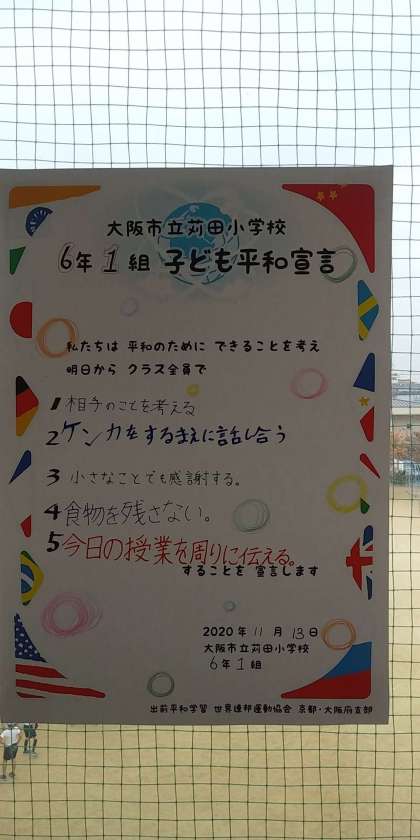 大阪市立苅田小学校
6年 1 組 子ども平和宣言
私たちは 平和のために できることを考え
明日から クラス全員で
1 相手のことを考える
2 ケンカをするまえに話し合う
3 小さなことでも感謝する。
4 食物を残さない。
5 今日の授業を周りに伝える。
することを 宣言します
2020 年 11 月 13 日
大阪市立苅田小学校
6 年 1 組
出前平和学習 世界連邦運動協会 京都・大阪府支部